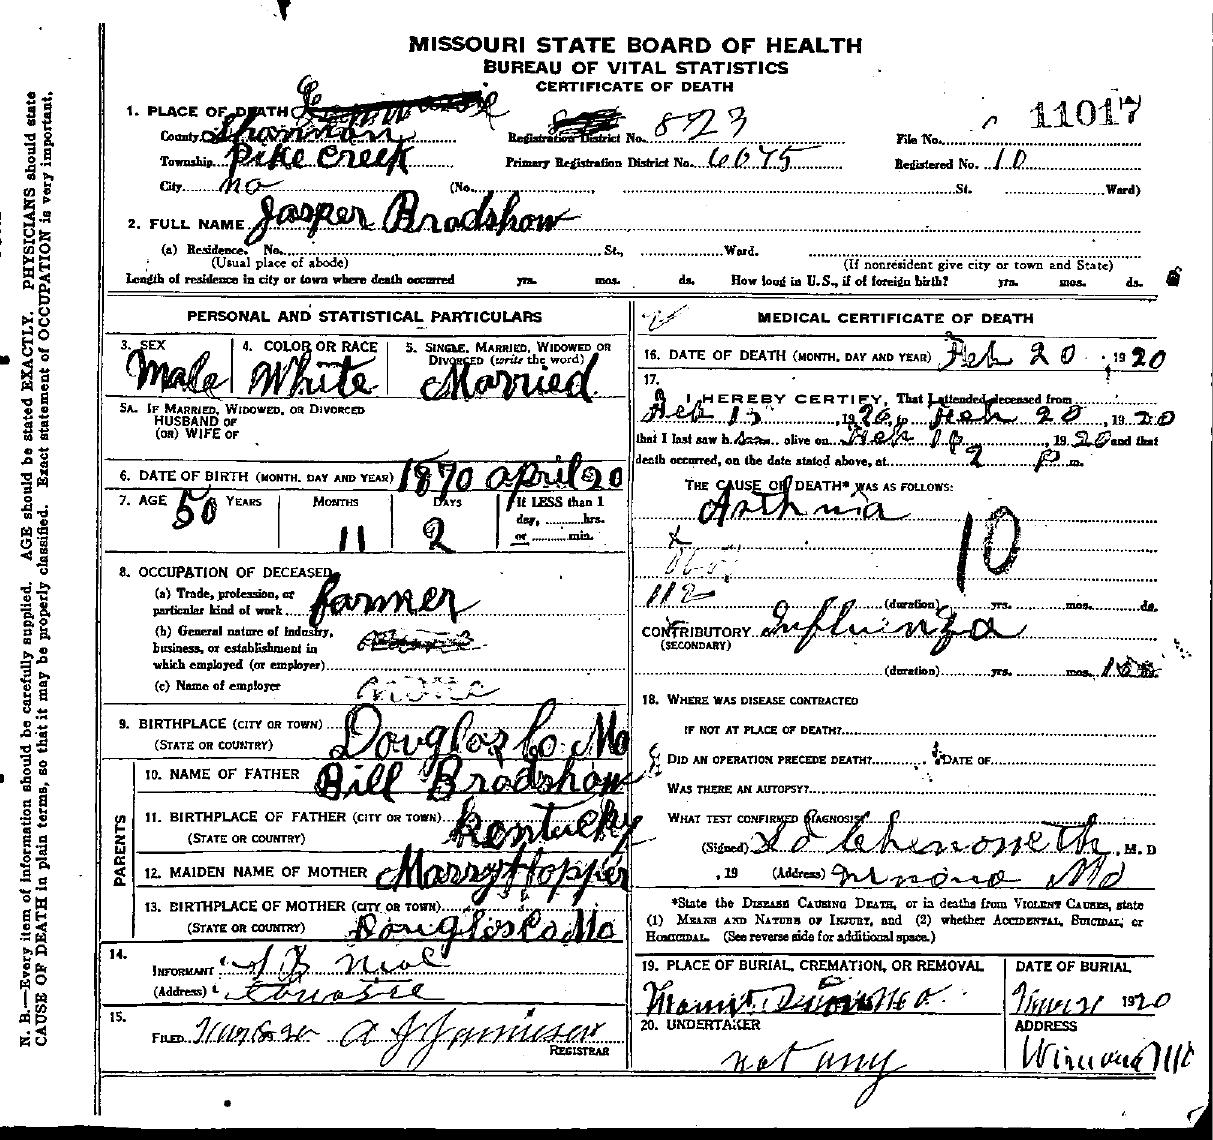 MISSOURI STATE BOARD OF HEALTH
BUREAU OF VITAL STATISTICS
CERTIFICATE OF DEATH
11017
1. PLACE OF DEATH
County Shannon Registration District No. 823 File No.
Township Pike Creek Primary Registration District No. 6075 Registered No. 10
City no (No. St. Ward)
2. FULL NAME Jasper Bradshow
(a) Residence. No. St., Ward.
(Usual place of abode) (If nonresident give city or town and State)
Length of residence in city or town where death occurred yrs. mos. ds. How long in U.S., if of foreign birth? yrs. mos. ds.
PERSONAL AND STATISTICAL PARTICULARS
3. SEX Male
4. COLOR OR RACE White
5. SINGLE, MARRIED, WIDOWED OR
DIVORCED (write the word)
Married
5A. IF MARRIED, WIDOWED, OR DIVORCED
HUSBAND OF
(OR) WIFE OF
6. DATE OF BIRTH (MONTH, DAY AND YEAR) 1870 april 20
7. AGE YEARS MONTHS DAYS If LESS than 1
day, hrs.
or min.
50 11 2
8. OCCUPATION OF DECEASED
(a) Trade, profession, or
particular kind of work farmer
(b) General nature of industry,
business, or establishment in
which employed (or employer)
(c) Name of employer none
9. BIRTHPLACE (CITY OR TOWN) Douglas Co Mo
(STATE OR COUNTRY)
PARENTS
10. NAME OF FATHER Bill Bradshow
11. BIRTHPLACE OF FATHER (CITY OR TOWN) Kentucky
(STATE OR COUNTRY)
12. MAIDEN NAME OF MOTHER Marry Hopper
13. BIRTHPLACE OF MOTHER (CITY OR TOWN)
(STATE OR COUNTRY) Douglas Co Mo
14.
INFORMANT
(Address)
15.
FILED A J Jamieson
REGISTRAR
MEDICAL CERTIFICATE OF DEATH
16. DATE OF DEATH (MONTH, DAY AND YEAR) Feb 20 1920
17.
I HEREBY CERTIFY, That I attended deceased from
Feb 15, 1920, to Feb 20, 1920
that I last saw h alive on Feb, 1920 and that
death occurred, on the date stated above, at 2 P m.
THE CAUSE OF DEATH* WAS AS FOLLOWS:
Asthma
10
112
(duration) yrs. mos. ds.
CONTRIBUTORY Influenza
(SECONDARY)
(duration) yrs. mos.
18. WHERE WAS DISEASE CONTRACTED
IF NOT AT PLACE OF DEATH?
DID AN OPERATION PRECEDE DEATH? DATE OF
WAS THERE AN AUTOPSY?
WHAT TEST CONFIRMED DIAGNOSIS?
(Signed) Chenoweth, M. D
, 19 (Address) Winona Mo
*State the DISEASE CAUSING DEATH, or in deaths from VIOLENT CAUSES, state
(1) MEANS AND NATURE OF INJURY, and (2) whether ACCIDENTAL, SUICIDAL, or
HOMICIDAL. (See reverse side for additional space.)
19. PLACE OF BURIAL, CREMATION, OR REMOVAL
DATE OF BURIAL
1920
20. UNDERTAKER
not any
ADDRESS
Winona Mo
N. B.—Every item of information should be carefully supplied. AGE should be stated EXACTLY. PHYSICIANS should state
CAUSE OF DEATH in plain terms, so that it may be properly classified. Exact statement of OCCUPATION is very important.